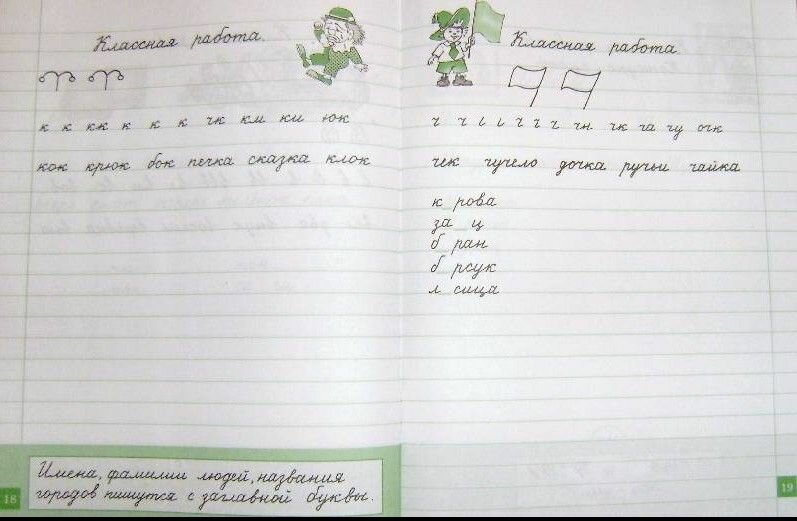 Классная работа.
к к кк к к к чк км ки юк
кок крюк бок печка сказка клок
Имена, фамилии людей, названия
городов пишутся с заглавной буквы.
18
Классная работа
ч ч чн чк ча чу очк
чек чучело дочка ручьи чайка
к рова
за ц
б ран
б рсук
л сица
19